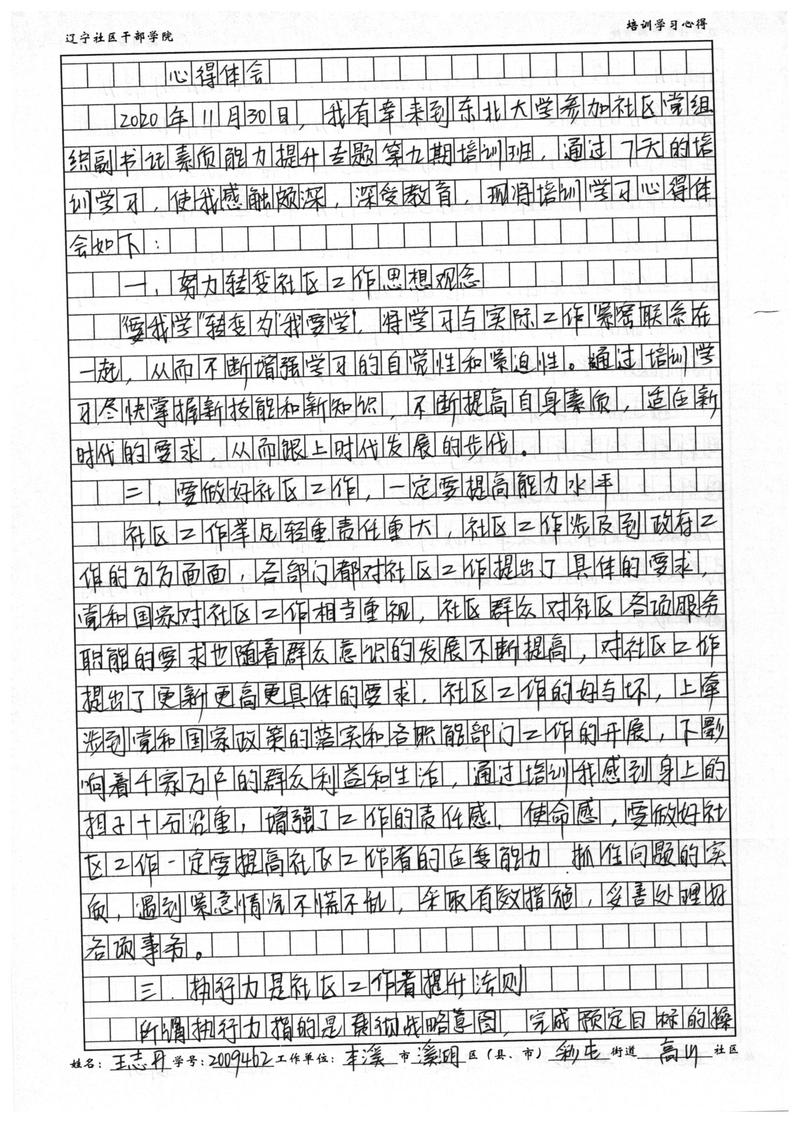 辽宁社区干部学院 培训学习心得
心得体会
2020年11月30日，我有幸来到东北大学参加社区党组
织副书记素质能力提升专题第九期培训班，通过7天的培
训学习，使我感触颇深，深受教育，现将培训学习心得体
会如下：
一、努力转变社区工作思想观念
“要我学”转变为“我要学”，将学习与实际工作紧密联系在
一起，从而不断增强学习的自觉性和紧迫性。通过培训学
习尽快掌握新技能和新知识，不断提高自身素质，适应新
时代的要求，从而跟上时代发展的步伐。
二、要做好社区工作，一定要提高能力水平
社区工作举足轻重责任重大，社区工作涉及到政府工
作的方方面面，各部门都对社区工作提出了具体的要求，
党和国家对社区工作相当重视，社区群众对社区各项服务
职能的要求也随着群众意识的发展不断提高，对社区工作
提出了更新更高更具体的要求，社区工作的好与坏，上牵
涉到党和国家政策的落实和各职能部门工作的开展，下影
响着千家万户的群众利益和生活，通过培训我感到身上的
担子十分沿重，增强了工作的责任感、使命感，要做好社
区工作一定要提高社区工作者的应变能力 抓住问题的实
质，遇到紧急情况不慌不乱，采取有效措施，妥善处理好
各项事务。
三、执行力是社区工作者提升法则
所谓执行力指的是贯彻战略意图，完成预定目标的操
姓名：王志丹 学号：2009462 工作单位：本溪 市 溪湖 区（县、市） 街道 社区